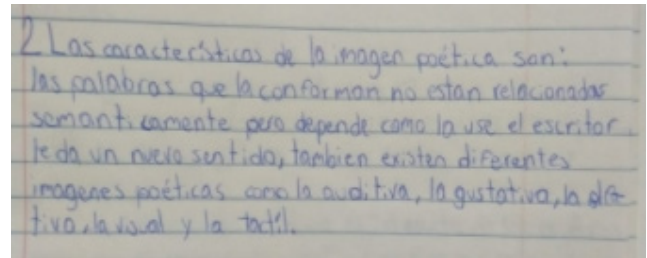 2 Las caracteristicas de la imagen poética son:
las palabras que la conforman no estan relacionadas
semanticamente pero depende como la use el escritor
le da un nuevo sentido, tambien existen diferentes
imagenes poéticas como la auditiva, la gustativa, la olfa
tiva, la visual y la tactil.